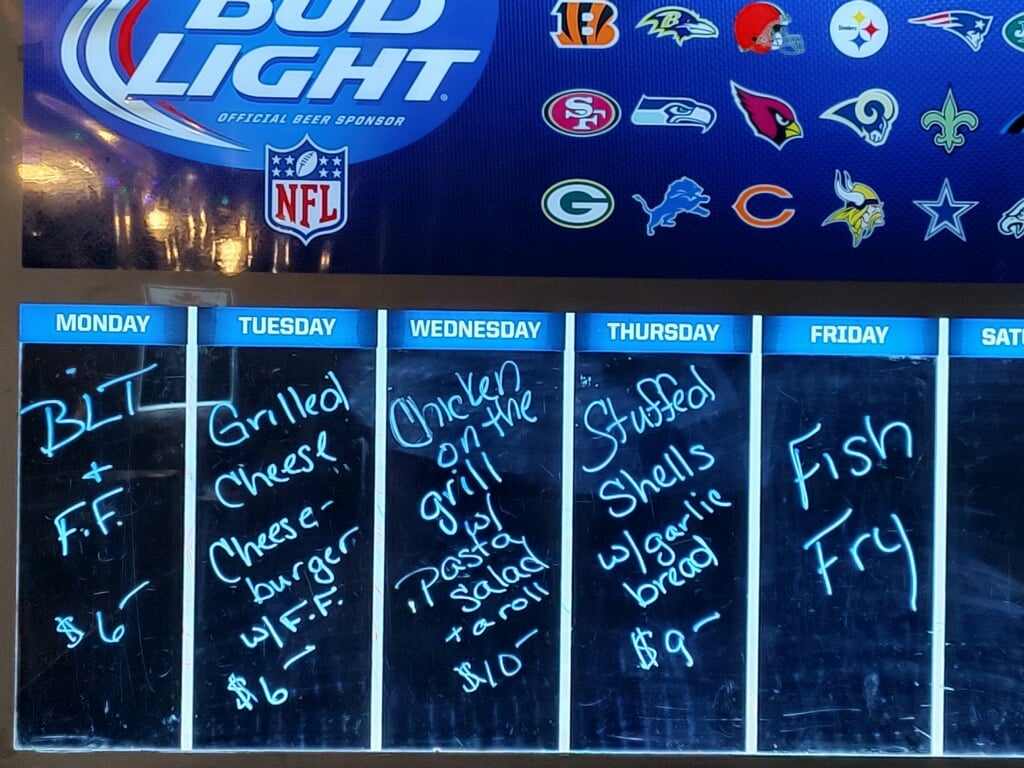 BUD
LIGHT
OFFICIAL BEER SPONSOR
NFL
Steelers
SF
G
C
MONDAY
BLT
+
F.F.
$6-
TUESDAY
Grilled
Cheese
Cheese-
burger
w/F.F.
$6-
WEDNESDAY
Chicken
on the
grill
w/
Pasta
salad
+ a roll
$10-
THURSDAY
Stuffed
Shells
w/garlic
bread
$9-
FRIDAY
Fish
Fry
SATU